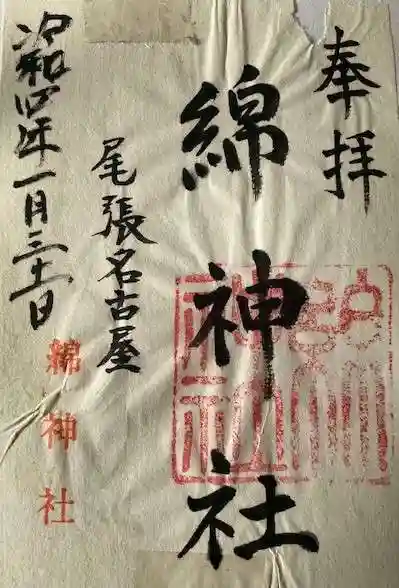 奉拝
綿神社
尾張名古屋
綿神社
昭和四年一月三十一日